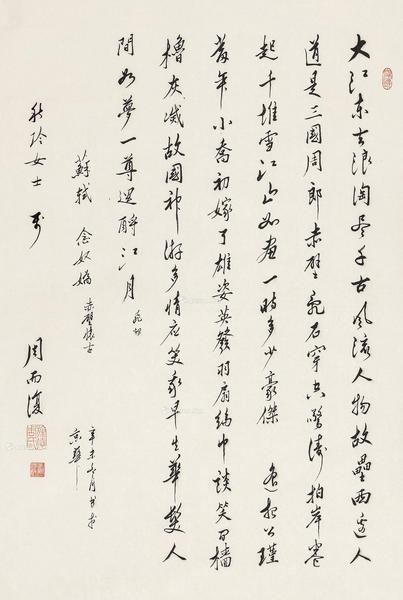 大江东去浪淘尽千古风流人物故壘西邊人
道是三國周郎赤壁乱石穿空驚涛拍岸卷
起千堆雪江山如画一時多少豪傑 遥想公瑾
當年小喬初嫁了雄姿英發羽扇纶巾談笑间檣
櫓灰滅故國神游多情应笑我早生華髮人
間如夢一尊還酹江月
蘇軾 念奴嬌 赤壁懷古
秋玲女士
周而復
辛未 月书于
京華